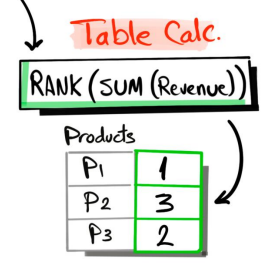 Table Calc.
RANK (SUM (Revenue))
Products
P1 1
P2 3
P3 2